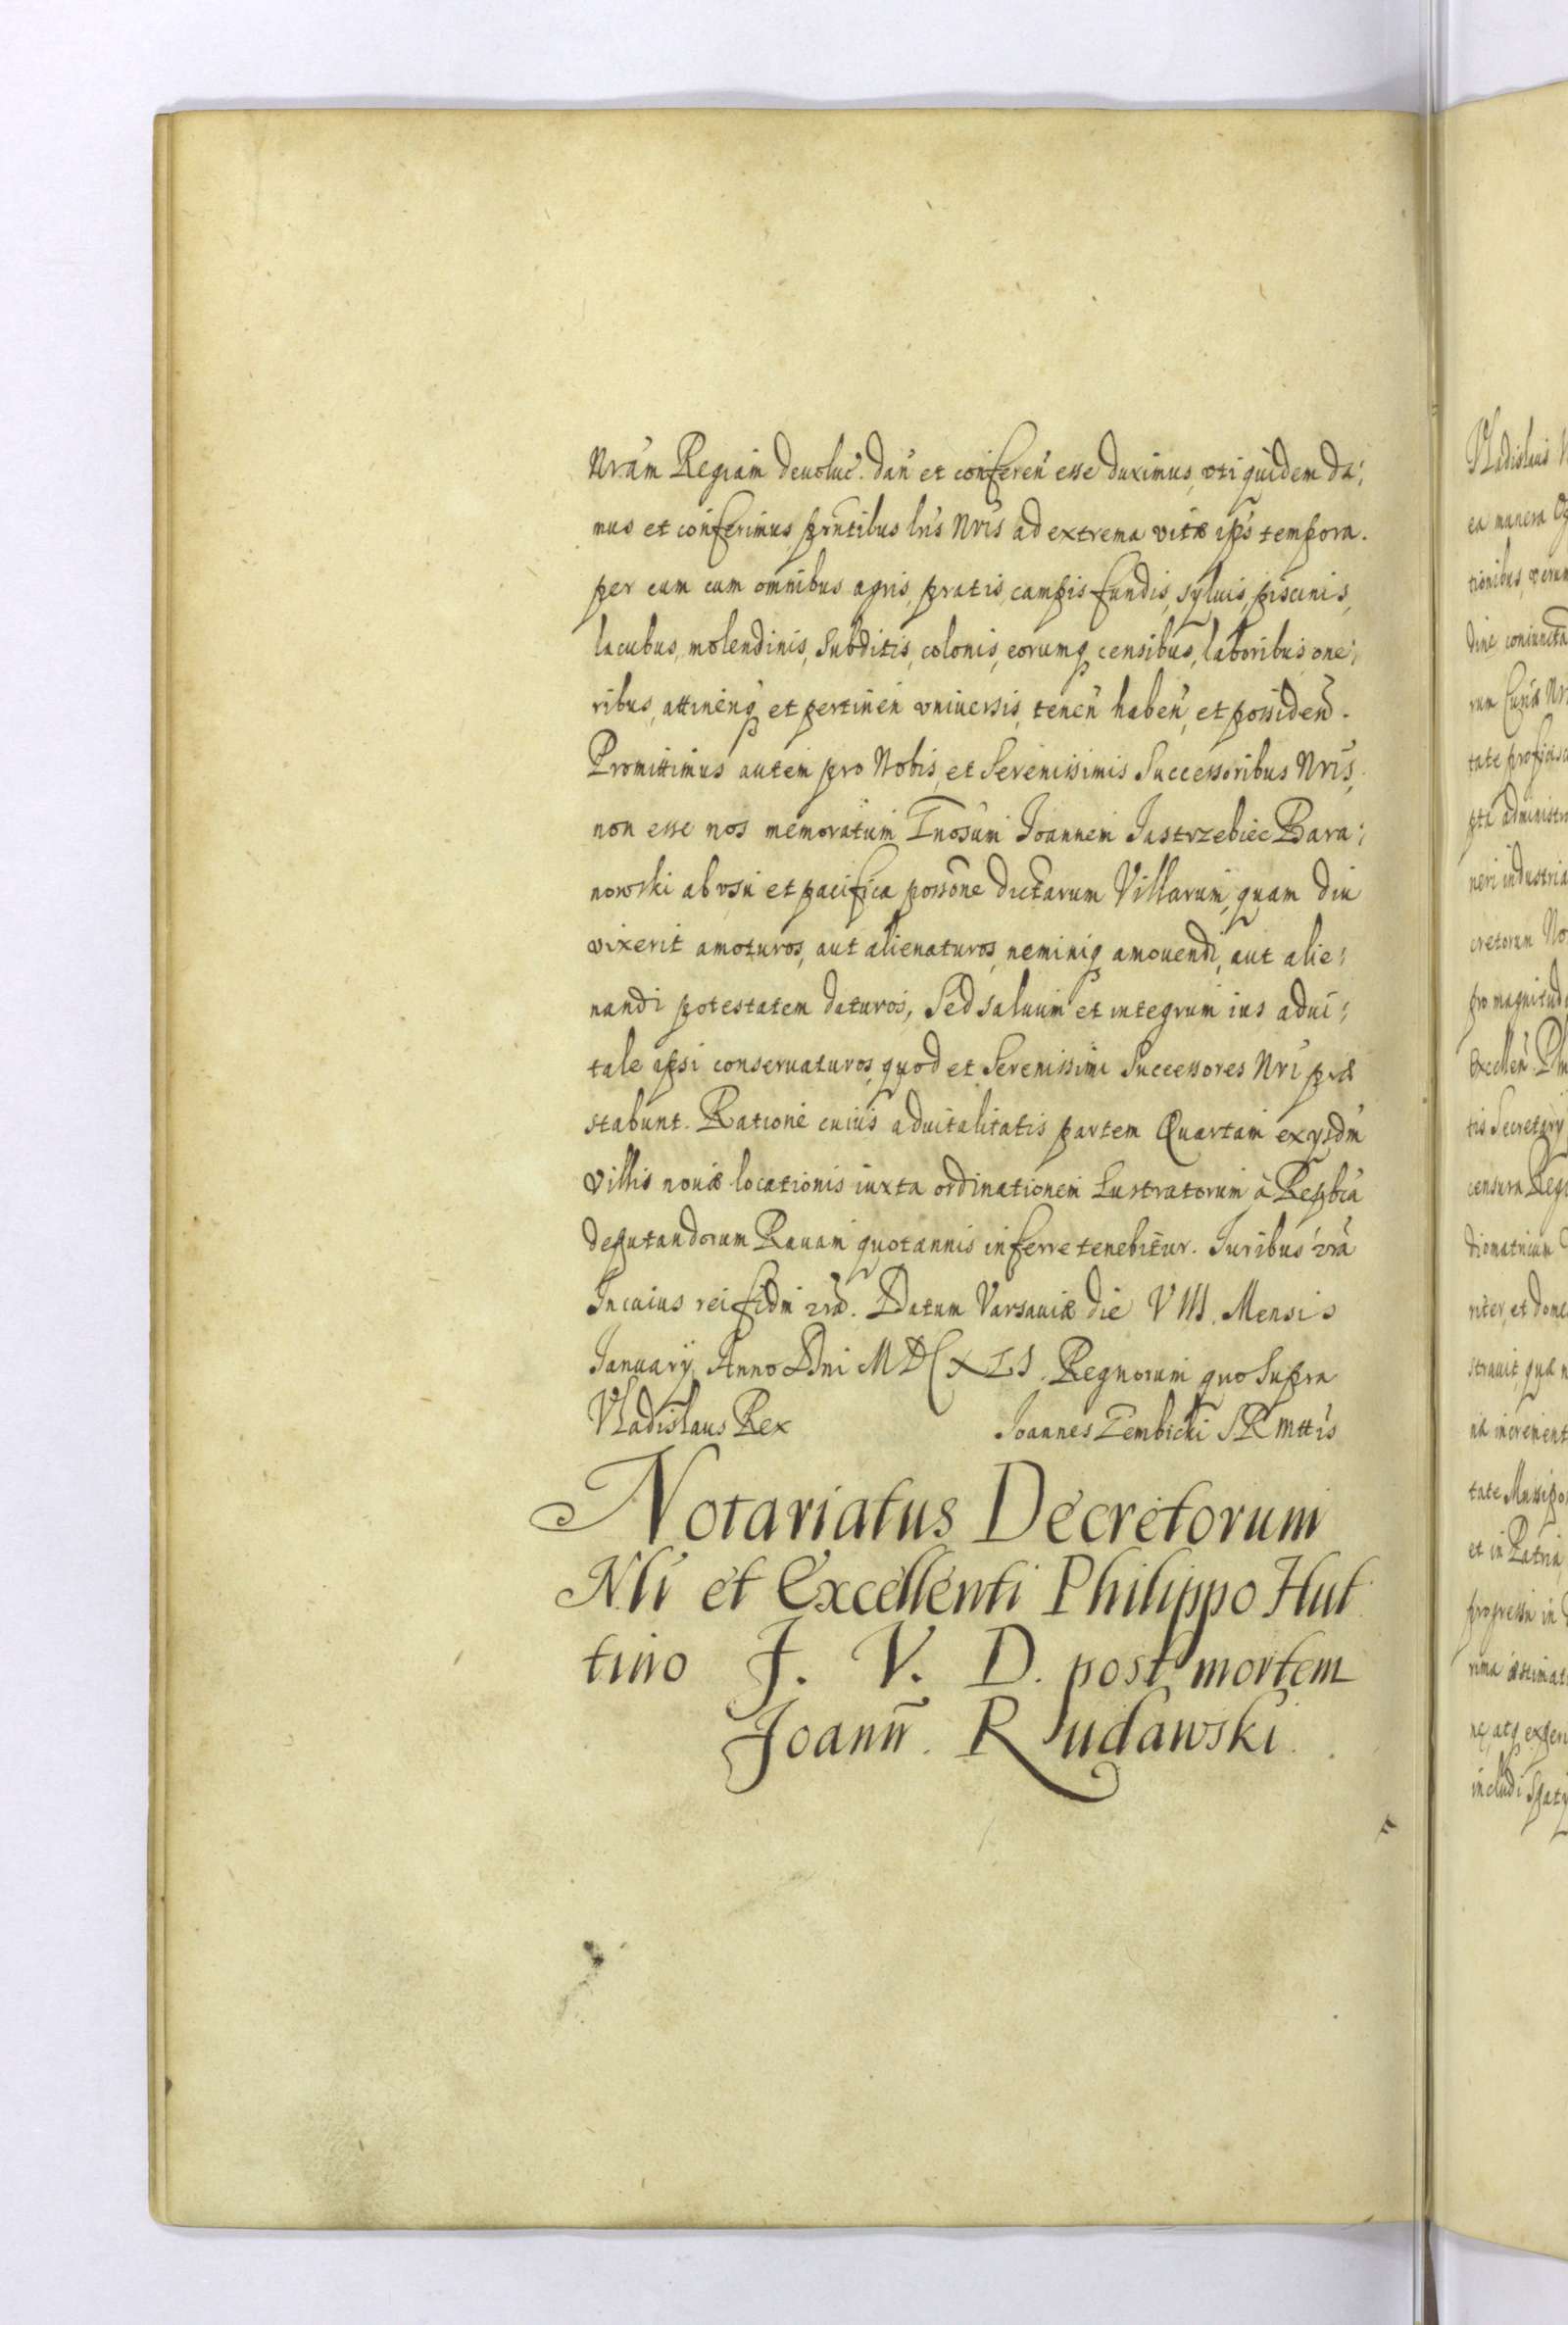 Nram Regiam deuolut. dan et conferen esse duximus, vti quidem da:
mus et conferimus prntibus lris Nris ad extrema vitæ ips tempora.
per eum cum omnibus agris, pratis, campis fundis, syluis, piscinis,
lacubus, molendinis, subditis, colonis, eorumq censibus, laboribus one:
ribus, attinenq et pertinen vniuersis, tenen haben, et possiden.
Promittimus autem pro Nobis, et Serenissimis Successoribus Nris,
non esse nos memoratum Gnosum Joannem Jastrzebiec Bara:
nowski ab vsu et pacifica possone dictarum Villarum, quam diu
vixerit amoturos, aut alienaturos, neminiq amouendi, aut alie:
nandi potestatem daturos, Sed saluum et integrum ius adui:
tale ipsi conseruaturos, quod et Serenissimi Successores Nri præ
stabunt. Ratione cuius aduitalitatis partem Quartam ex ijsdm
villis nouæ locationis iuxta ordinationem Lustratorum à Repbca
deputandorum Rauam quotannis inferre tenebitur. Juribus
In cuius rei fidm Datum Varsauiæ die VIII. Mensis
January Anno Dni MDCXLI. Regnorum quo supra
Vladislaus Rex Joannes Gembicki SR Mttis
Notariatus Decretorum
Nli et Excellenti Philippo Hut
tino J. V. D. post mortem
Joann. Rudawski.
Vladislaus
ea munera
tionibus, verum
dine coniuncta
rum Curiæ
tate
administr
neri industria
cretorum No
pro magnitud
Excellen
tis Secretary
censura Reg
riter, et dome
strauit, quæ
et in Patria
progressu in
includi Spaty